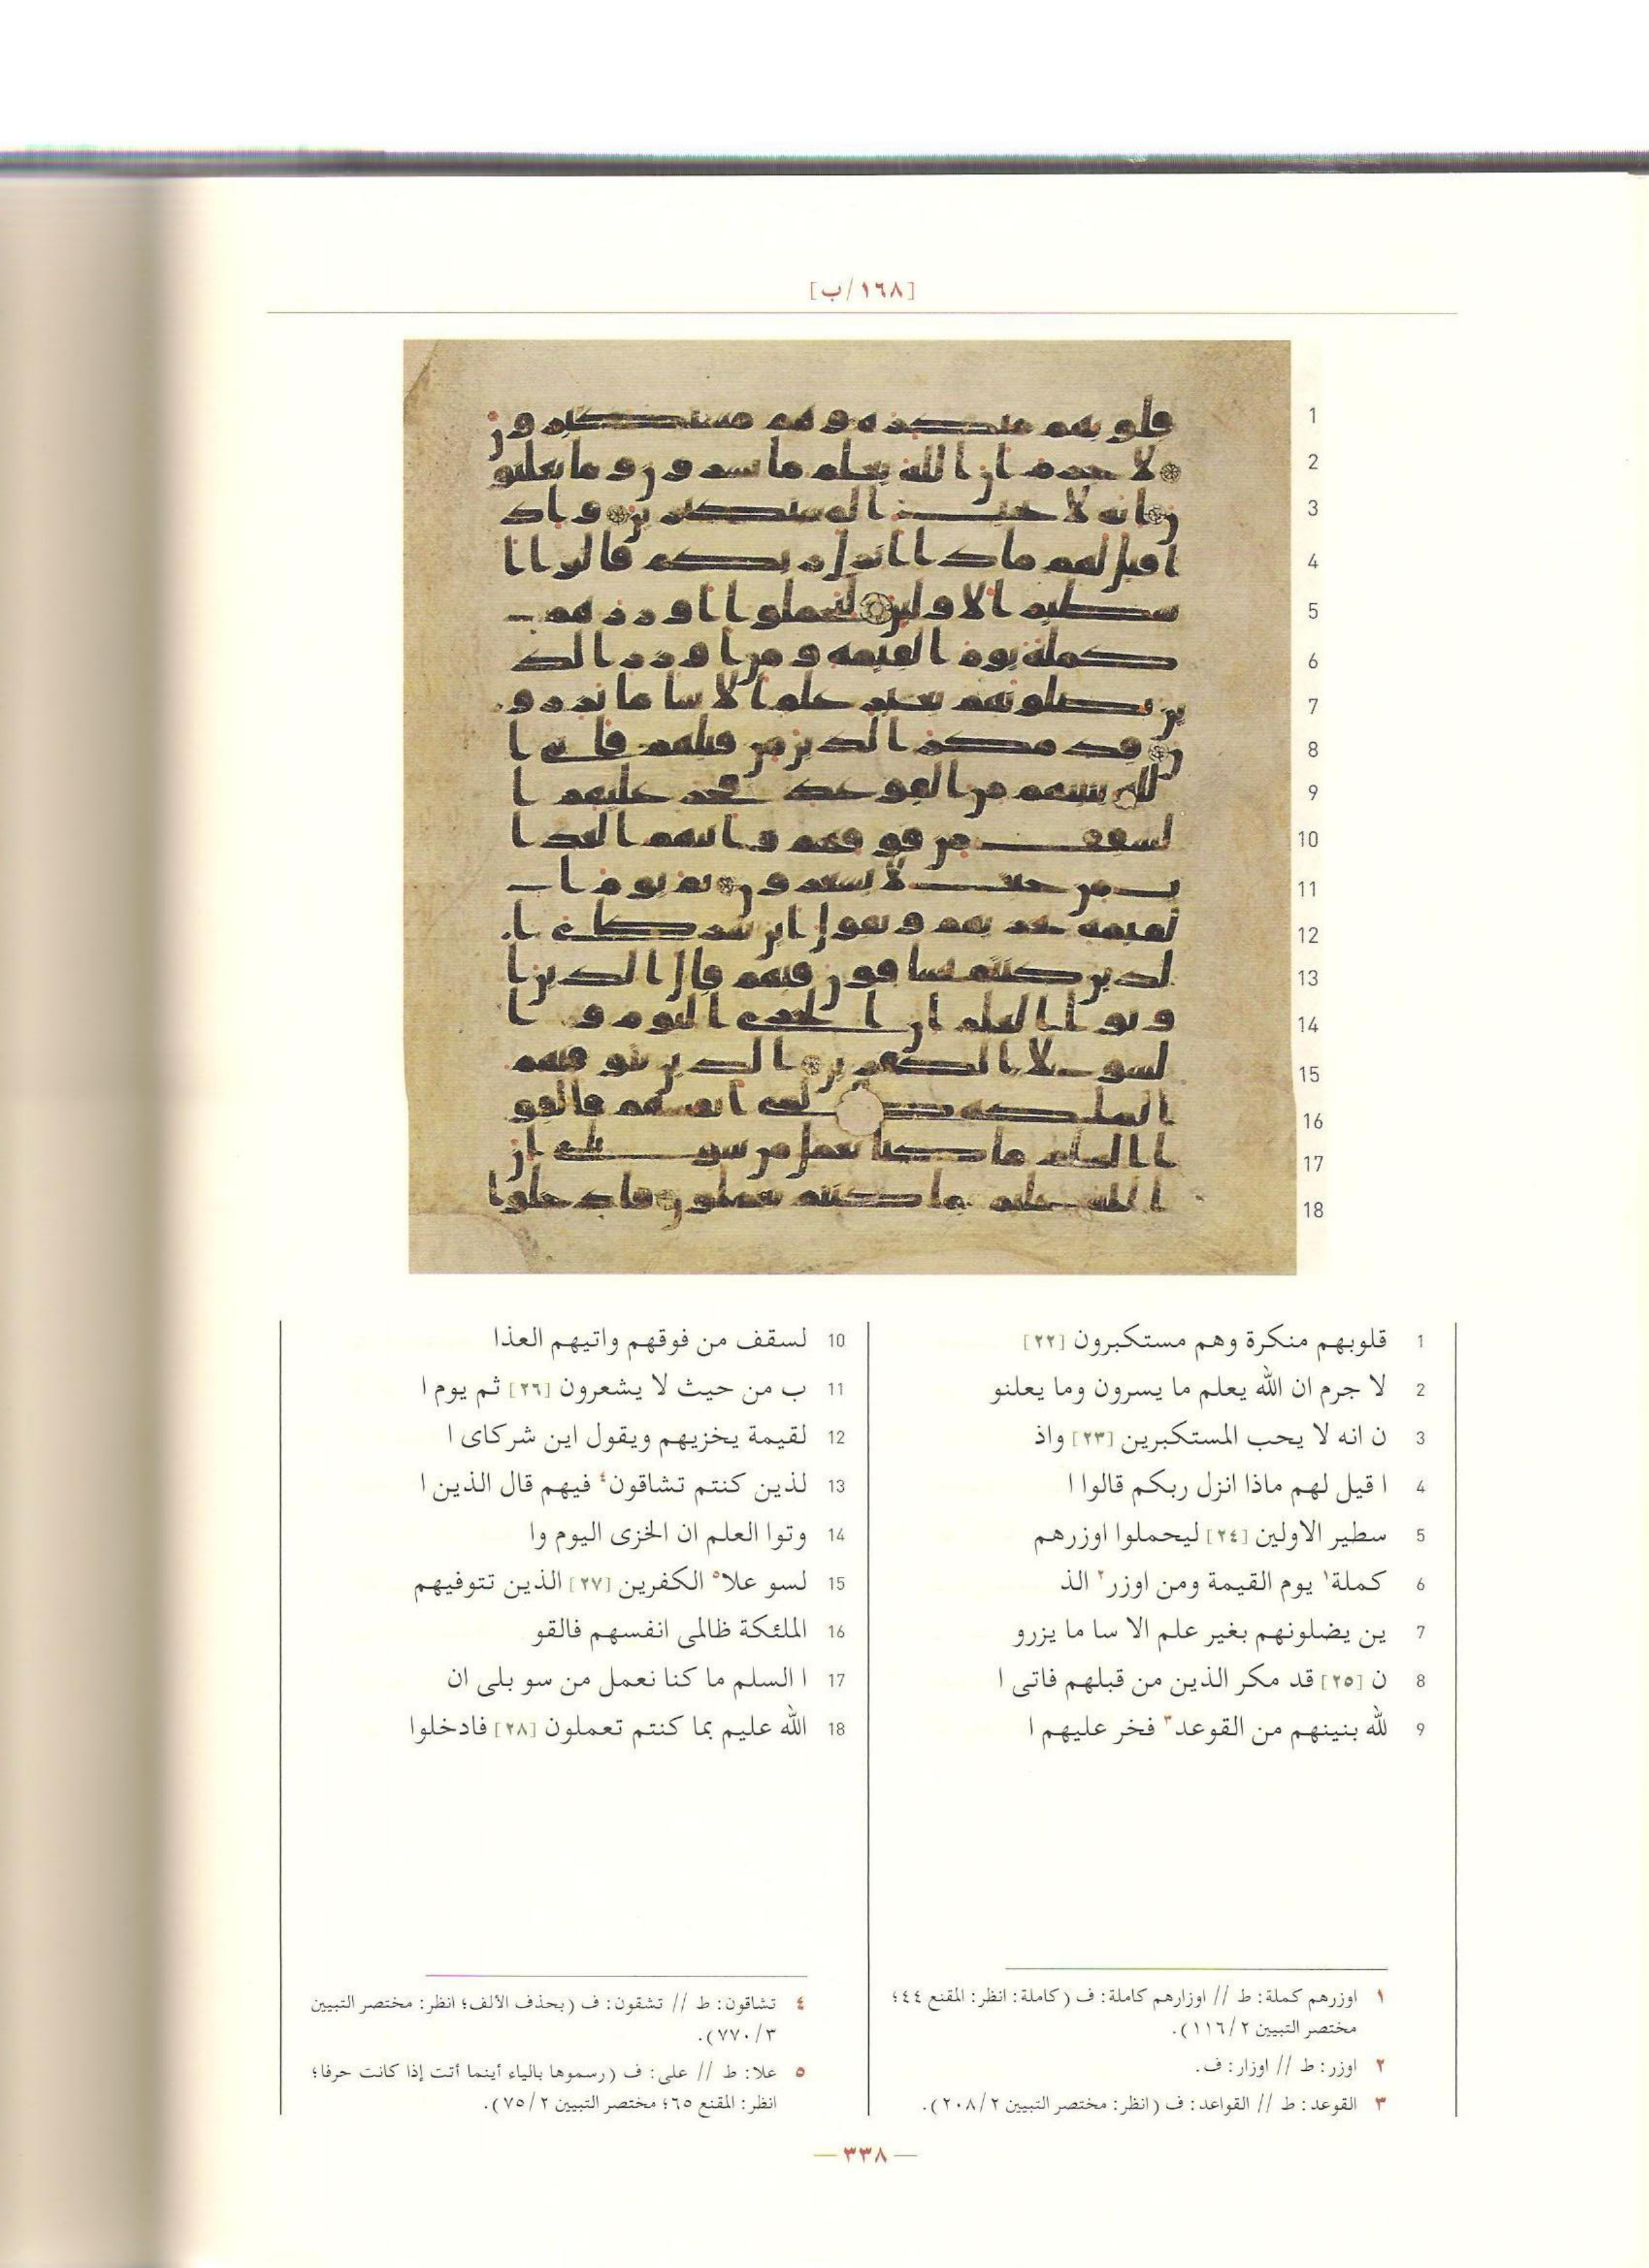 [١٦٨/ب]
1 قلوبهم منكرة وهم مستكبرون [٢٢]
2 لا جرم ان الله يعلم ما يسرون وما يعلنو
3 ن انه لا يحب المستكبرين [٢٣] واذ
4 ا قيل لهم ماذا انزل ربكم قالوا ا
5 سطير الاولين [٢٤] ليحملوا اوزرهم
6 كملة١ يوم القيمة ومن اوزر٢ الذ
7 ين يضلونهم بغير علم الا سا ما يزرو
8 ن [٢٥] قد مكر الذين من قبلهم فاتى ا
9 لله بنينهم من القوعد٣ فخر عليهم ا
10 لسقف من فوقهم واتيهم العذا
11 ب من حيث لا يشعرون [٢٦] ثم يوم ا
12 لقيمة يخزيهم ويقول اين شركاى ا
13 لذين كنتم تشاقون٤ فيهم قال الذين ا
14 وتوا العلم ان الخزى اليوم وا
15 لسو علا٥ الكفرين [٢٧] الذين تتوفيهم
16 الملئكة ظالمى انفسهم فالقو
17 ا السلم ما كنا نعمل من سو بلى ان
18 الله عليم بما كنتم تعملون [٢٨] فادخلوا
١ اوزرهم كملة: ط // اوزارهم كاملة: ف (كاملة: انظر: المقنع ٤٤؛
مختصر التبيين ١١٦/٢).
٢ اوزر: ط // اوزار: ف.
٣ القوعد: ط // القواعد: ف (انظر: مختصر التبيين ٢٠٨/٢).
٤ تشاقون: ط // تشقون: ف (بحذف الألف؛ انظر: مختصر التبيين
٧٧٠/٣).
٥ علا: ط // على: ف (رسموها بالياء أينما أتت إذا كانت حرفا؛
انظر: المقنع ٦٥؛ مختصر التبيين ٧٥/٢).
— ٣٣٨ —